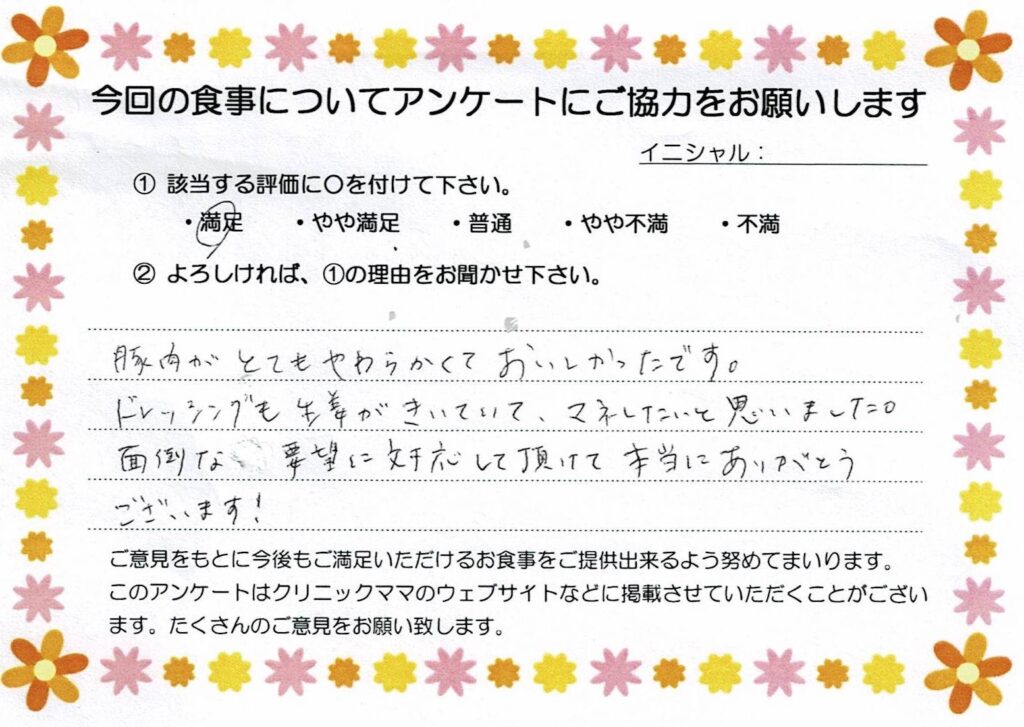 今回の食事についてアンケートにご協力をお願いします
イニシャル：
① 該当する評価に〇を付けて下さい。
・満足 ・やや満足 ・普通 ・やや不満 ・不満
② よろしければ、①の理由をお聞かせ下さい。
豚肉がとてもやわらかくておいしかったです。
ドレッシングも生姜がきいていて、マネしたいと思いました。
面倒な、要望に対応して頂けて本当にありがとう
ございます!
ご意見をもとに今後もご満足いただけるお食事をご提供出来るよう努めてまいります。
このアンケートはクリニックママのウェブサイトなどに掲載させていただくことがござい
ます。たくさんのご意見をお願い致します。